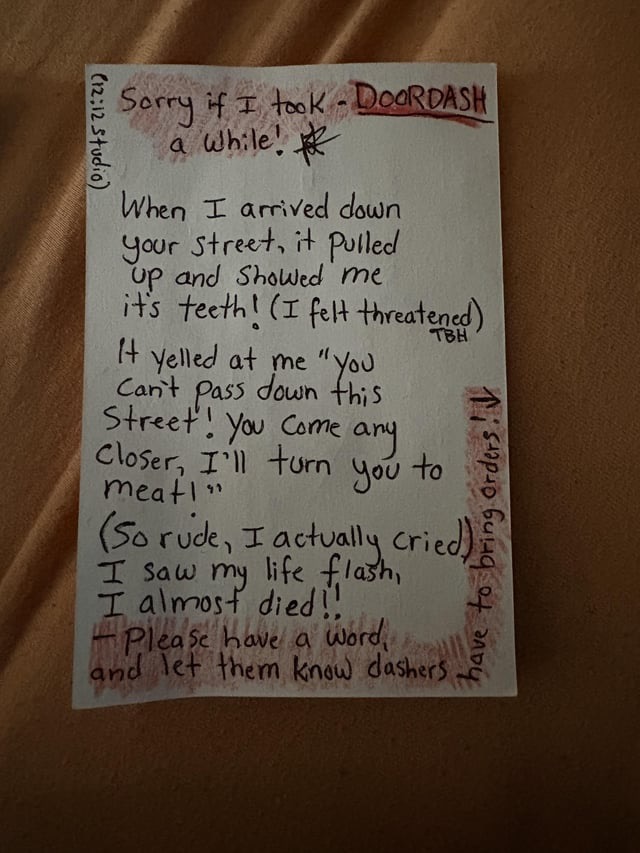 (12:12 studio)
Sorry if I took - DOORDASH
a while!
When I arrived down
your street, it pulled
up and showed me
it's teeth! (I felt threatened)
TBH
It yelled at me "You
can't pass down this
street! You come any
closer, I'll turn you to
meat!"
(So rude, I actually cried)
I saw my life flash,
I almost died!!
- Please have a word,
and let them know dashers
have to bring orders!